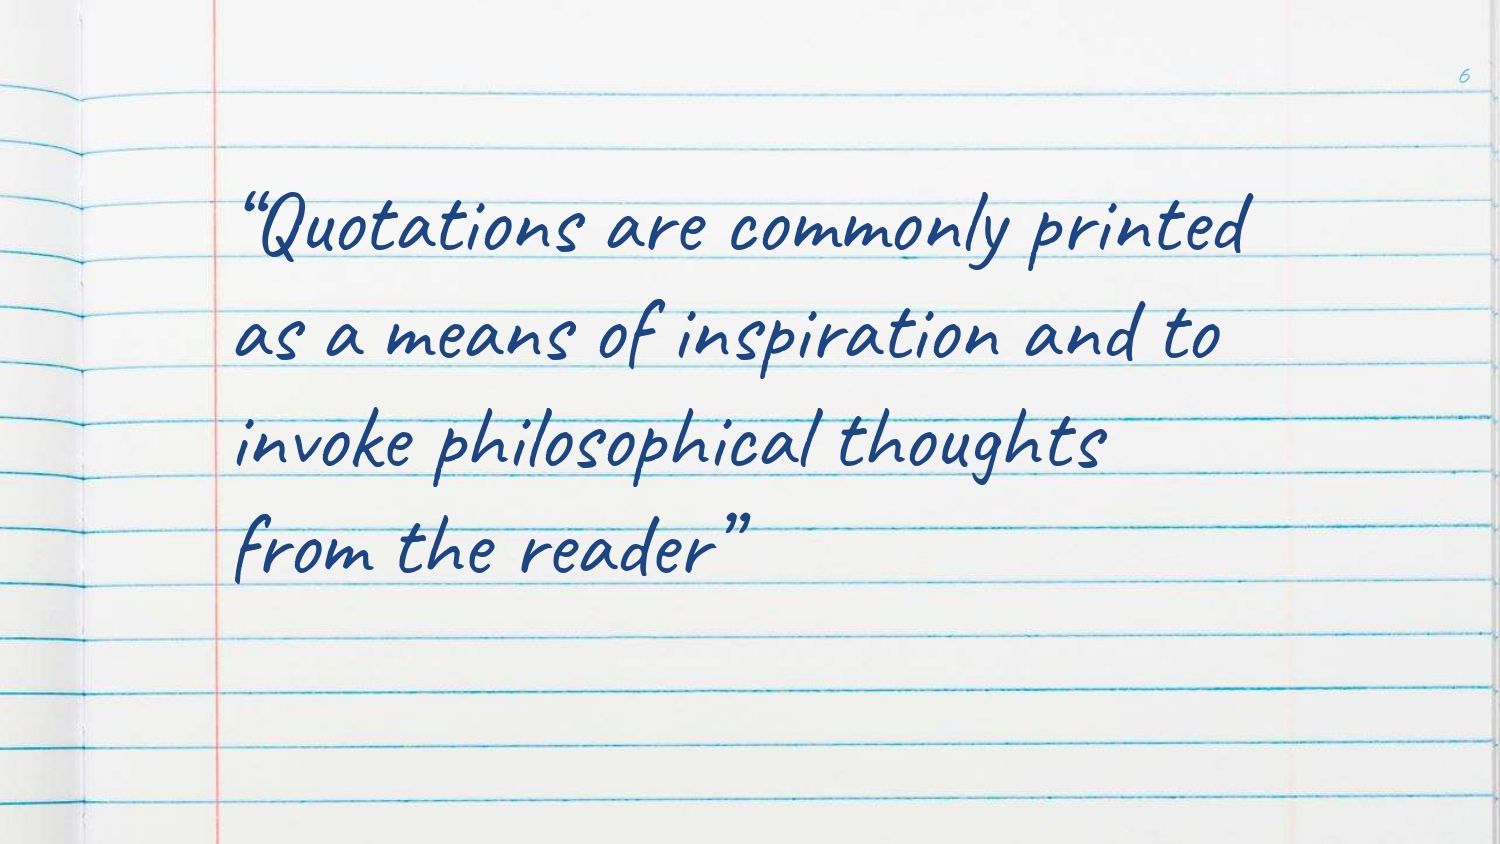 6
“Quotations are commonly printed
as a means of inspiration and to
invoke philosophical thoughts
from the reader”